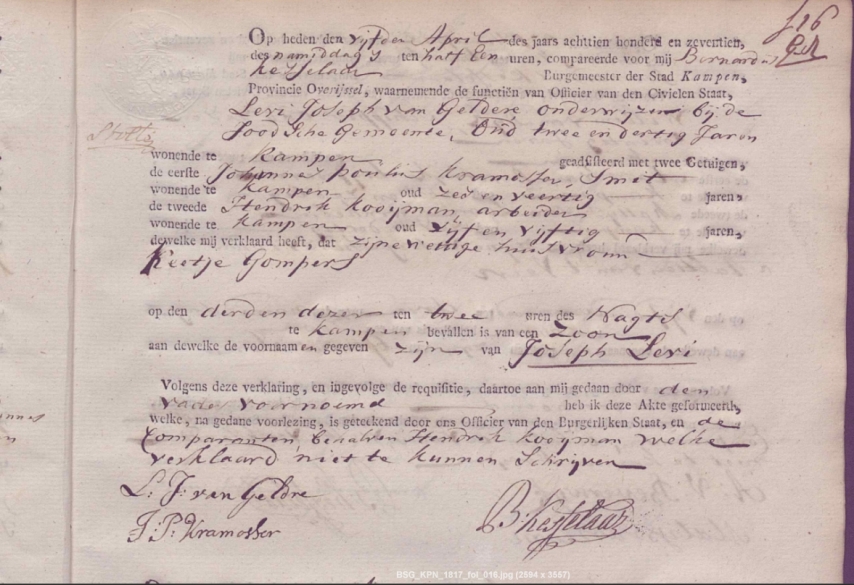 f 16
Op heden den vijfden April des jaars achttien honderd en zeventien,
des namiddags ten half Een uren, compareerde voor mij Bernardus
Kesselaar Burgemeester der Stad Kampen,
Provincie Overijssel, waarnemende de functiën van Officier van den Civielen Staat,
Levi Joseph van Geldere onderwijzer bij de
Joodsche Gemeente, Oud twee en dertig Jaren
wonende te Kampen geadsisteerd met twee Getuigen,
de eerste Johannes poulus Kramosser, Smit
wonende te Kampen oud zes en veertig jaren,
de tweede Hendrik Kooijman, arbeider
wonende te Kampen oud vijf en vijftig jaren,
dewelke mij verklaard heeft, dat zijne wettige huisvrouw
Keetje Gompers
op den derden dezer ten twee uren des Nagts
te Kampen bevallen is van een zoon
aan dewelke de voornaamen gegeven zijn van Joseph Levi
Volgens deze verklaring, en ingevolge de requisitie, daartoe aan mij gedaan door den
vader voornoemd heb ik deze Akte geformeerd,
welke, na gedane voorlezing, is geteekend door ons Officier van den Burgerlijken Staat, en de
Comparanten, behalven Hendrik Kooijman welke
verklaard niet te kunnen Schrijven
L: J: van Geldre
J: P: Kramosser
B: Kesselaar
BSG_KPN_1817_fol_016.jpg (2594 x 3557)